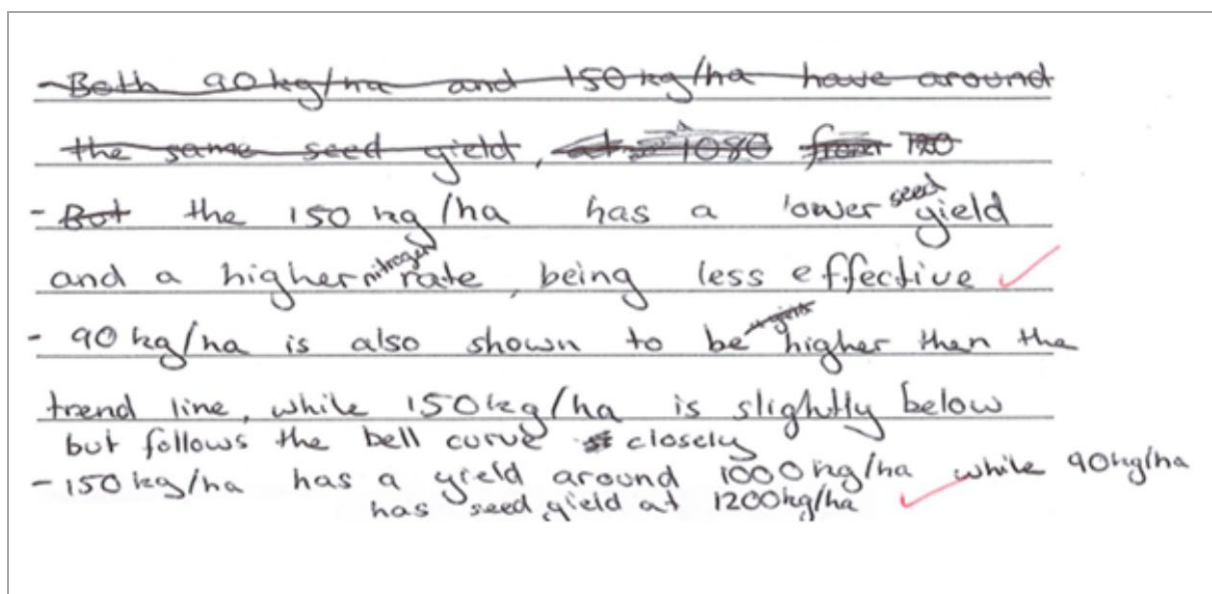 - Both 90 kg/ha and 150 kg/ha have around
the same seed yield, 1080
- But the 150 kg/ha has a lower seed yield
and a higher nitrogen rate, being less effective
- 90 kg/ha is also shown to be higher than the
trend line, while 150 kg/ha is slightly below
but follows the bell curve closely
- 150 kg/ha has a yield around 1000 kg/ha while 90 kg/ha
has seed yield at 1200 kg/ha